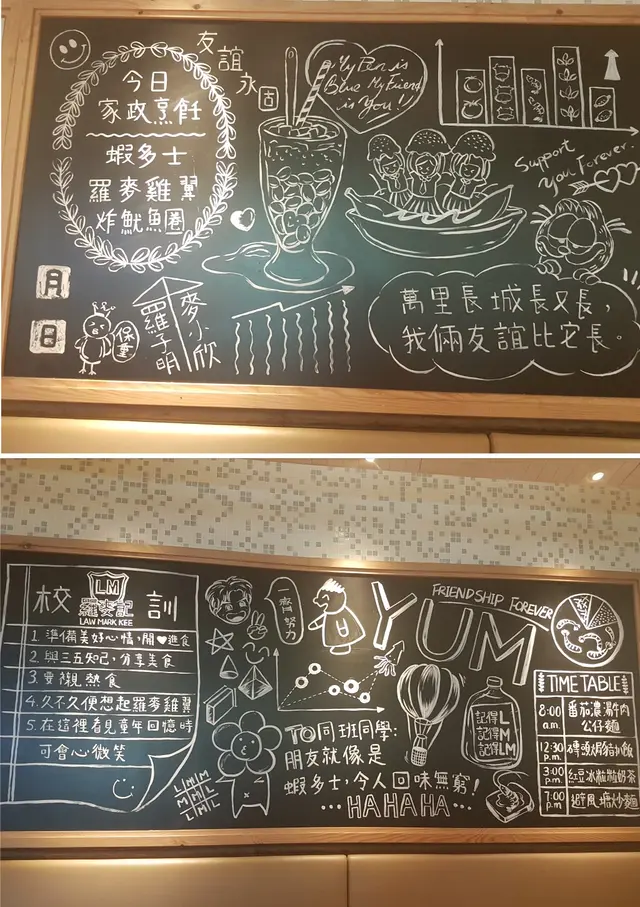 友誼永固
今日
家政烹飪
蝦多士
羅麥雞翼
炸魷魚圈
My Pen is
Blue My Friend
is You!
Support
You Forever.
月
日
保重
羅子明
麥小欣
萬里長城長又長,
我倆友誼比它長。
校訓
LM
羅麥記
LAW MARK KEE
1. 準備美好心情,開♥進食
2. 與三五知己,分享美食
3. 要親熱食
4. 久不久便想起羅麥雞翼
5. 在這裡看見童年回憶時
可會心微笑
齊努力
YUM
FRIENDSHIP FOREVER
TO同班同學:
朋友就像是
蝦多士,令人回味無窮!
...HAHAHA...
記得L
記得M
記得LM
TIME TABLE
8:00 a.m. 番茄濃湯牛肉公仔麵
12:30 p.m. 磚頭焗豬扒飯
3:00 p.m. 紅豆冰粒粒奶茶
7:00 p.m. 避風塘炒麵